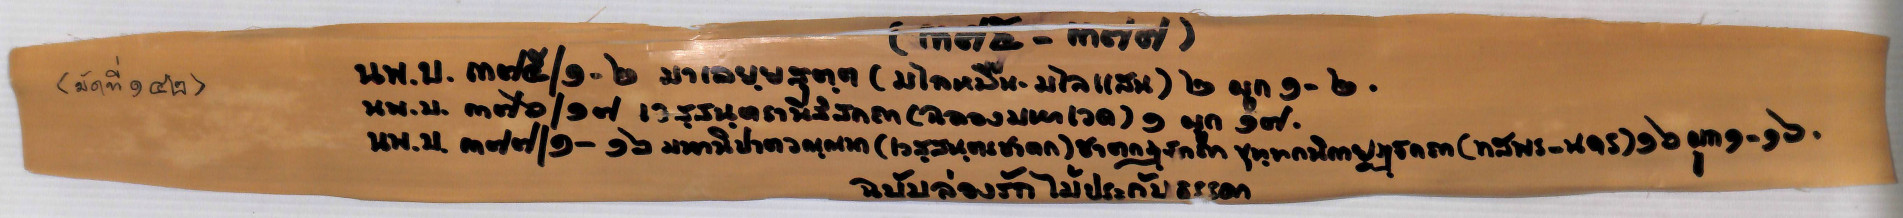 (๓๗๕ - ๓๗๗)
(มัดที่ ๑๔๒)
นพ.บ. ๓๗๕/๑-๒ มาเลยฺยสุตฺต (มไลหมื่น-มไลแสน) ๒ ผูก ๑-๒.
นพ.บ. ๓๗๖/๑๗ เวสฺสนฺตรานิสํสกถา (ฉลองมหาเวด) ๑ ผูก ๑๗.
นพ.บ. ๓๗๗/๑-๑๖ มหานิปาตวณฺณนา (เวสฺสนฺตรชาดก) ชาตกฏฺฐกถา ขุทฺทกนิกายฏฺฐกถา (ทสพร-นคร) ๑๖ ผูก ๑-๑๖.
ฉบับล่องรัก ไม้ประกับธรรมดา